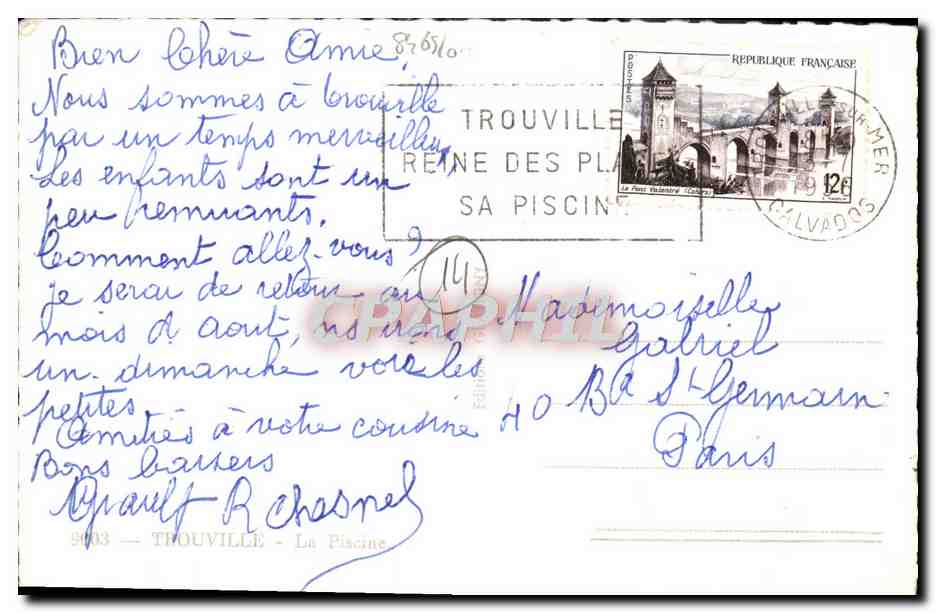 Bien Chère Amie,
Nous sommes à trouville
par un temps merveilleux,
Les enfants sont un
peu remuants.
Comment allez-vous?
je serai de retour au
mois d aout, ns irons
un dimanche voir les
petites
Amitiés à votre cousine
Bons baisers
R Chesnel
TROUVILLE
REINE DES PLA
SA PISCINE
REPUBLIQUE FRANÇAISE
POSTES
Le Pont Valentré (Cahors)
12F
SUR-MER
CALVADOS
14
CPAPHIL
Mademoiselle
Gabriel
40 Bd St Germain
Paris
9003 — TROUVILLE - La Piscine